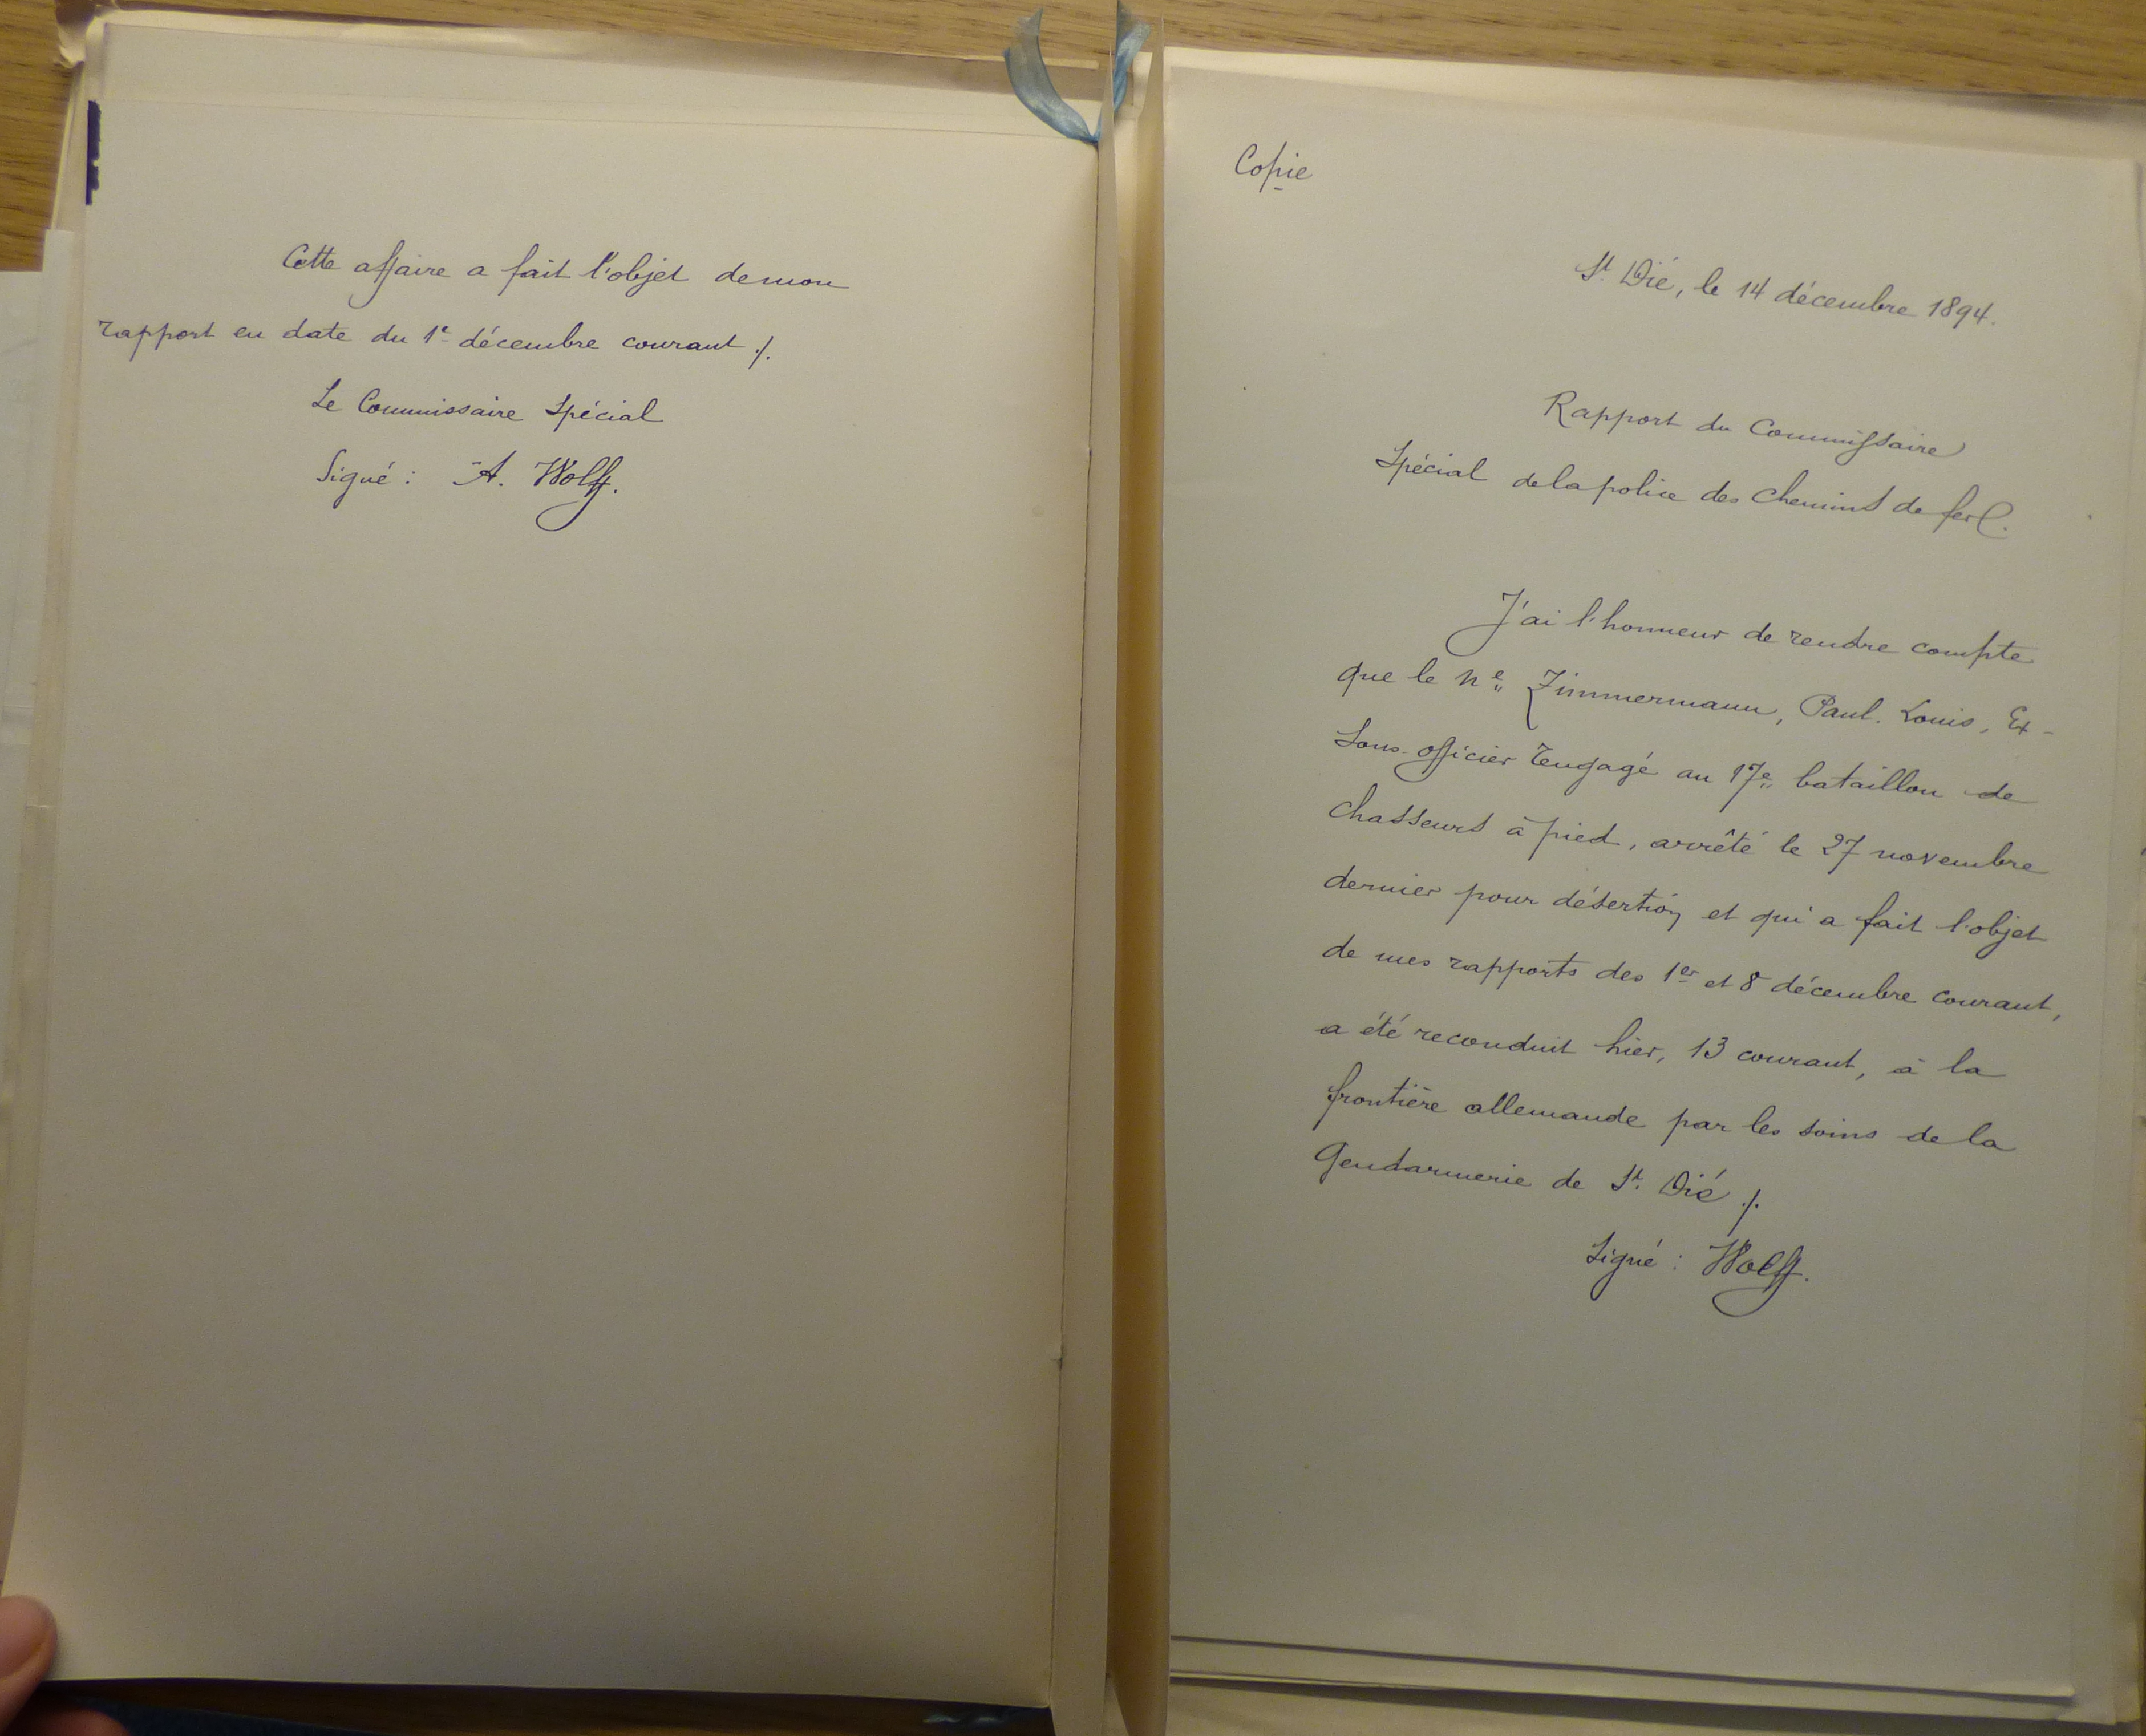 Cette affaire a fait l'objet de mon
rapport en date du 1er décembre courant ./.
Le Commissaire Spécial
Signé : A. Wolff.
Copie
St. Dié, le 14 décembre 1894.
Rapport du Commissaire
Spécial de la police des Chemins de fer.
J'ai l'honneur de rendre compte
que le né Zimmermann, Paul. Louis, Ex-
Sous-officier rengagé au 17e bataillon de
chasseurs à pied, arrêté le 27 novembre
dernier pour désertion et qui a fait l'objet
de mes rapports des 1er et 8 décembre courant,
a été reconduit hier, 13 courant, à la
frontière allemande par les soins de la
Gendarmerie de St. Dié ./.
Signé : Wolff.